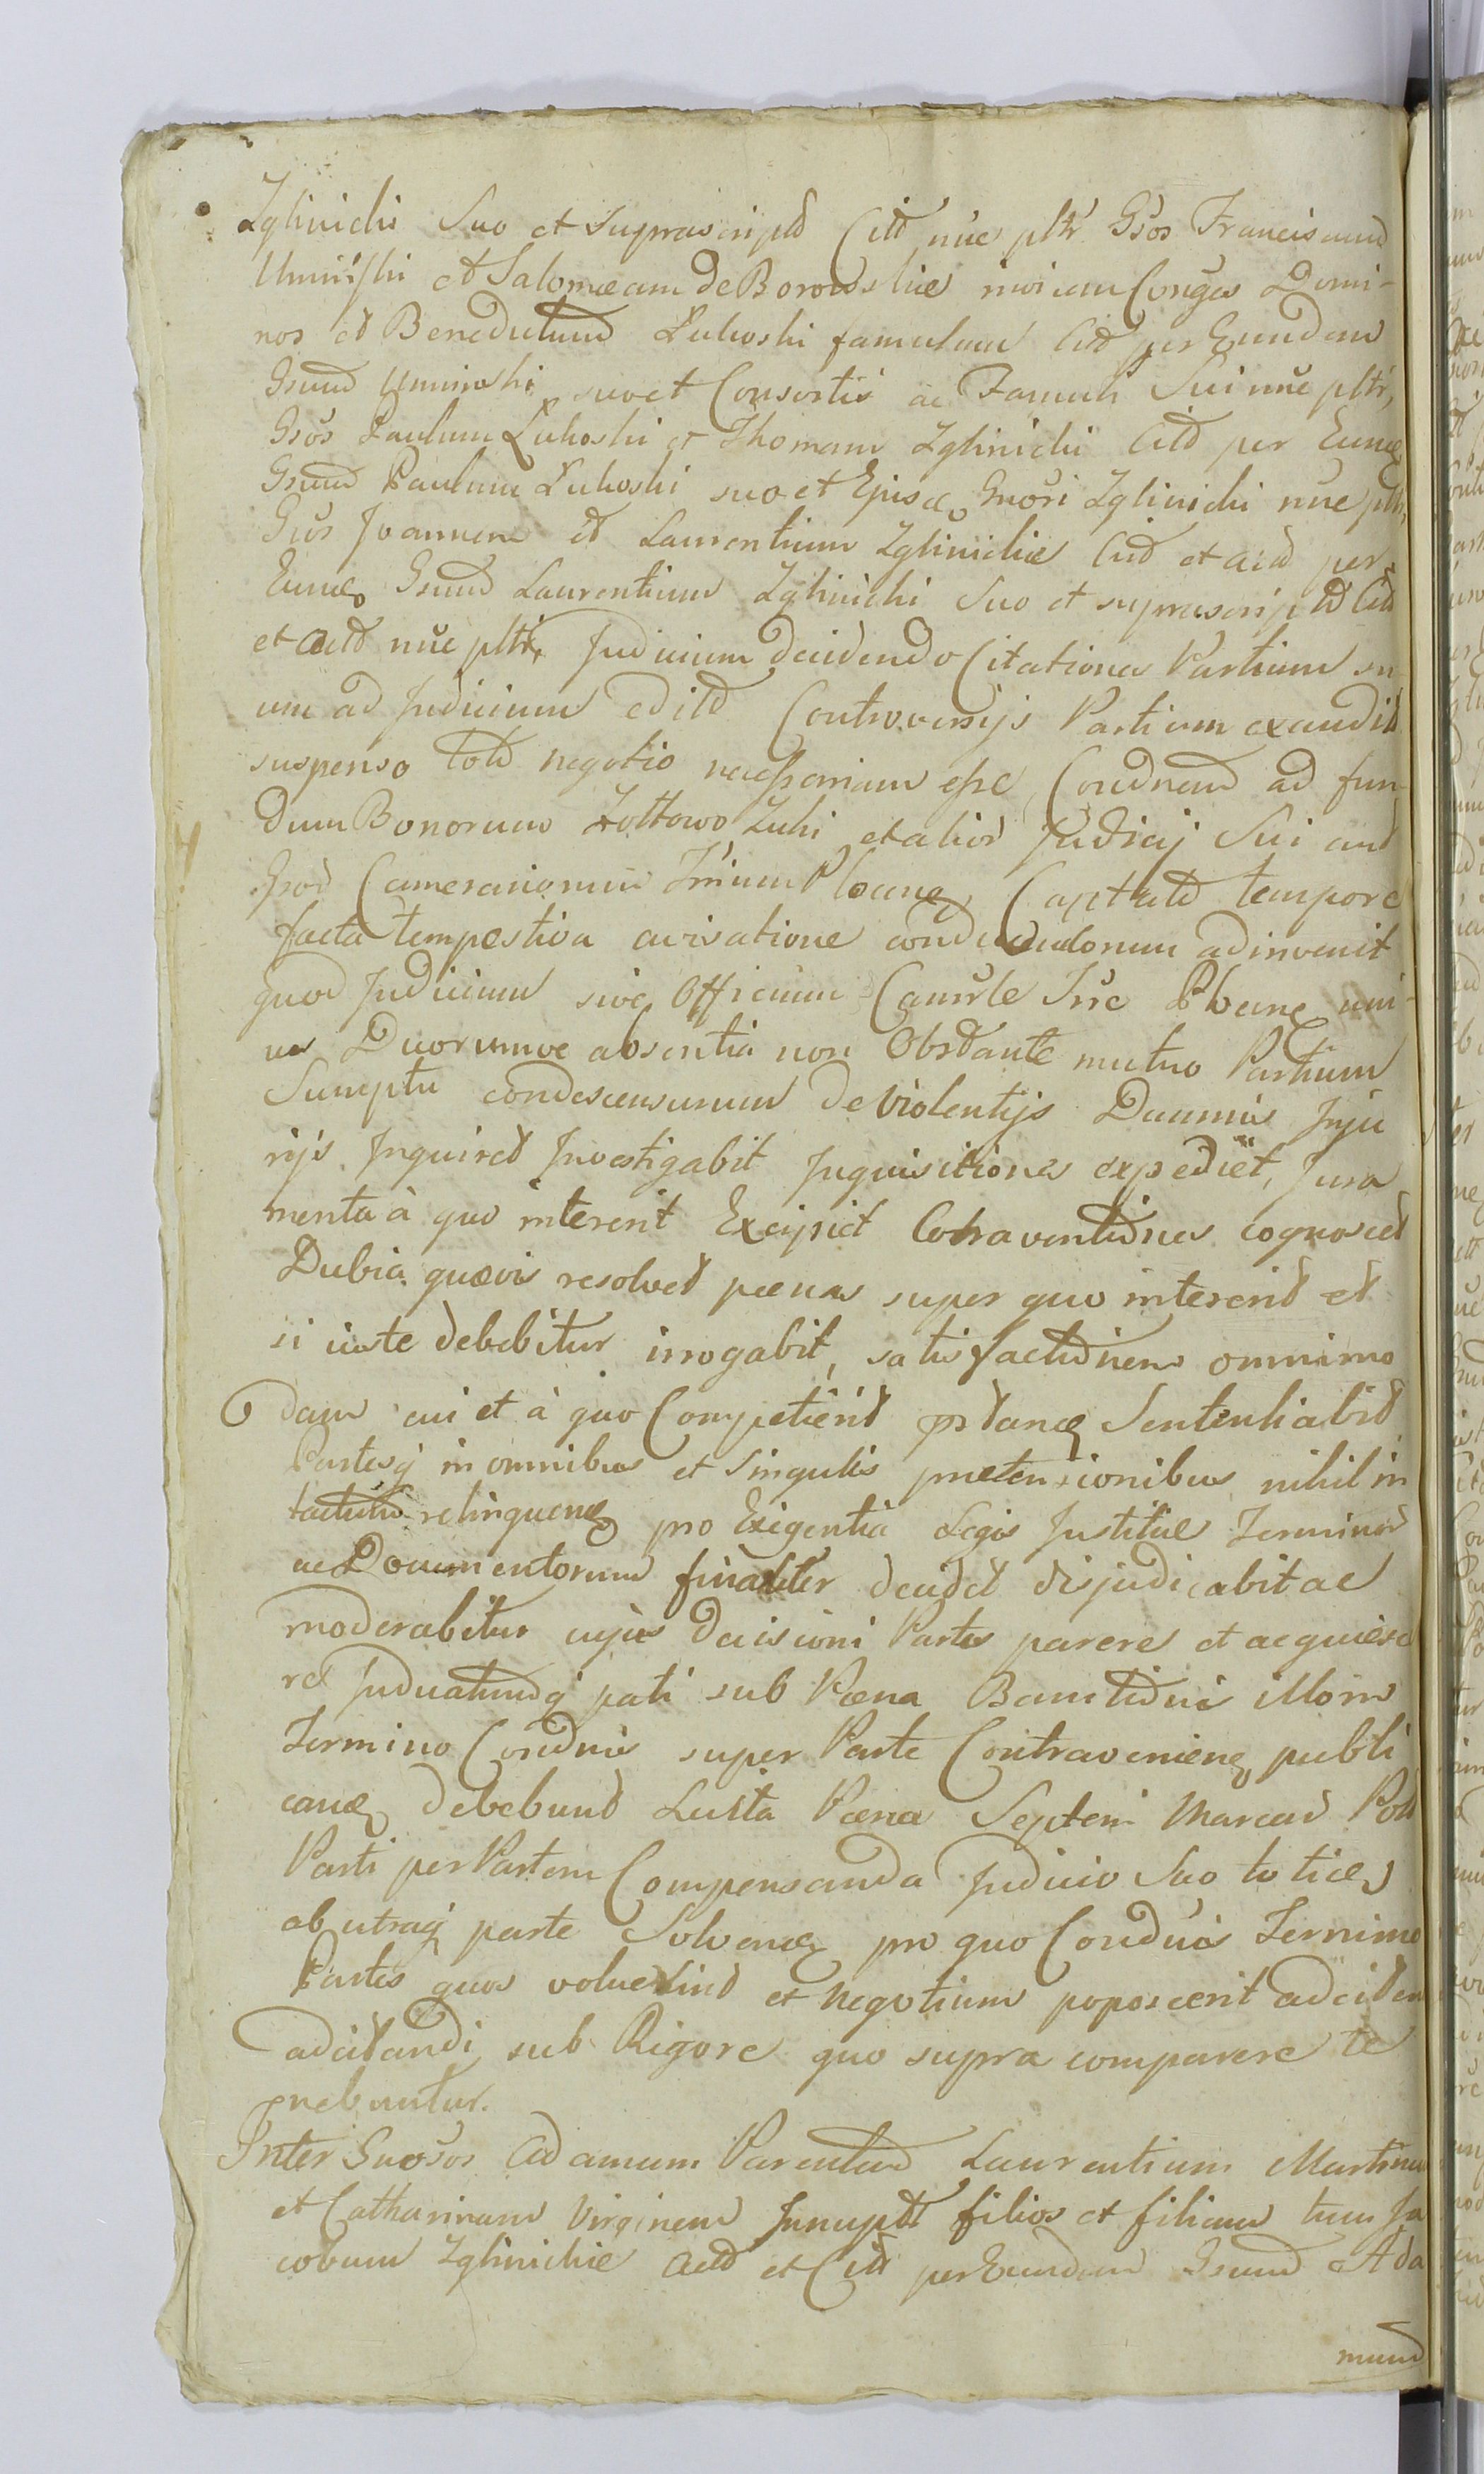 Zglinicki Suo et suprascript Citt nũe pltr Gsos Franciscum
Uminski et Salomeam de Borowskie inviem Conges Domi-
nos et Benedictum Lukoski famulum Citt per Eundem
Gsum Uminski suo et Consortis ac Famuli Sui nũe pltr,
Gsos Paulum Lukoski et Thomam Zglinicki Citt per Eunq
Gsum Paulum Lukoski suo et Ejusq Gnosi Zglinicki nũe pltr,
Gsos Joannem et Laurentium Zglinickie Citt et actt per
Eunq Gsum Laurentium Zglinicki Suo et suprascriptt Citt
et actt nũe pltr, Judicium decidendo Citationes Partium su-
um ad Judicium editt Controversijs Partium exaudit
suspenso toto negotio necessarium esse Condnem ad fun-
dum Bonorum Zołtowo Żuki et alior Judicij Sui aut
Gsor Camerariorum Trium Plocenq, Captato tempore
facta tempestiva avisatione condendorum adinvenit
quod Judicium sive Officium Camrle Trrc Plocenq uni-
us Duorumve absentia non Obstante mutuo Partium
Sumptu condescensurum de Violentijs Damnis Inju
rijs Inquiret Investigabit Inquisitiones expediet, Jura
menta à quo intererit Excipiet Cotraventiones cognoscet
Dubia quævis resolvet pœnas super quo intererit et
si iuste debebitur irrogabit, satisfactionem omnimo
dam cui et à quo Competierit pstanq Sententiabit
Partesq in omnibus et Singulis prætensionibus nihil in
tactum relinquenq pro Exigentia Legis Justitiæ Terminor
ac Documentorum finaliter decidet disjudicabit ac
moderabitur cujus decisioni Partes parere et acquiesce
re Judicatumq pati sub Pœna Bannitionis illorum
Termino Condnis super Parte Contravenienq publi
canq debebunt Luita Pœna Septem Marcar Poll
Parti per Partem Compensanda Judicio Suo toties
ab utraq parte Solvenq pro quo Condnis Termino
Partes quos voluerint et negotium poposcerit adciten
adcitandi, sub Rigore quo supra comparere te
nebuntur.
Inter Gnosos Adamum Parentem Laurentium Martinum
et Catharinam Virginem Innuptt filios et filiam tum Ja
cobum Zglinickie actt et Citt per Eundem Gsum Ada
mum